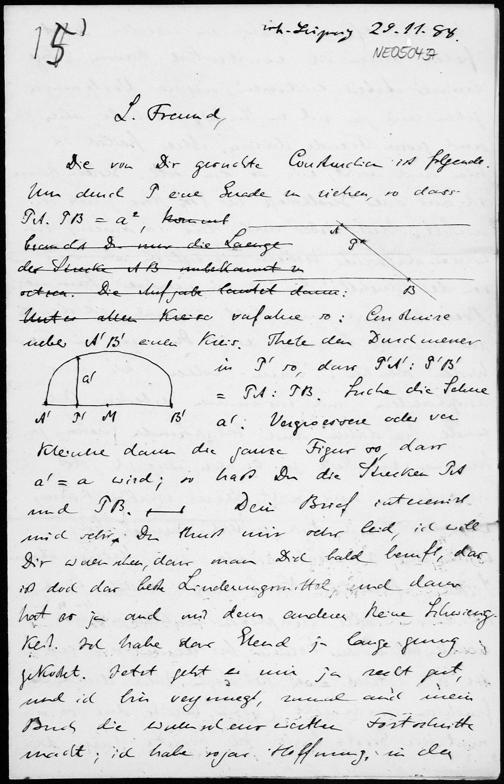 15)
29.11.88.
NE050437
L. Freund,
Die von Dir gesuchte Construction ist folgende.
Um durch P eine Gerade zu ziehen, so dass
PA. PB = a², kommt
A
P
B
brauchst Du nur die Laenge
der Strecke AB unbekannt zu
setzen. Die Aufgabe lautet dann:
Kreise verfahre so: Construire
ueber A'B' einen Kreis. Theile den Durchmesser
in P' so, dass P'A' : P'B'
= PA : PB. Suche die Sehne
a'
A' P' M B'
a'. Vergroessere oder ver
kleinere dann die ganze Figur so, dass
a' = a wird; so hast Du die Strecken PA
und PB. Dein Brief interessirt
mich sehr. Du thust mir sehr leid, ich will
Dir wuenschen, dass man Dich bald beruft, das
ist doch das beste Linderungsmittel, und dann
hat es ja auch mit dem anderen keine Schwierig
keit. Ich habe das Elend ja lange genug
gekostet. Jetzt geht es mir ja recht gut,
und ich bin vergnuegt, zumal auch mein
Buch die wuenschenswerthen Fortschritte
macht; ich habe sogar Hoffnung, in den